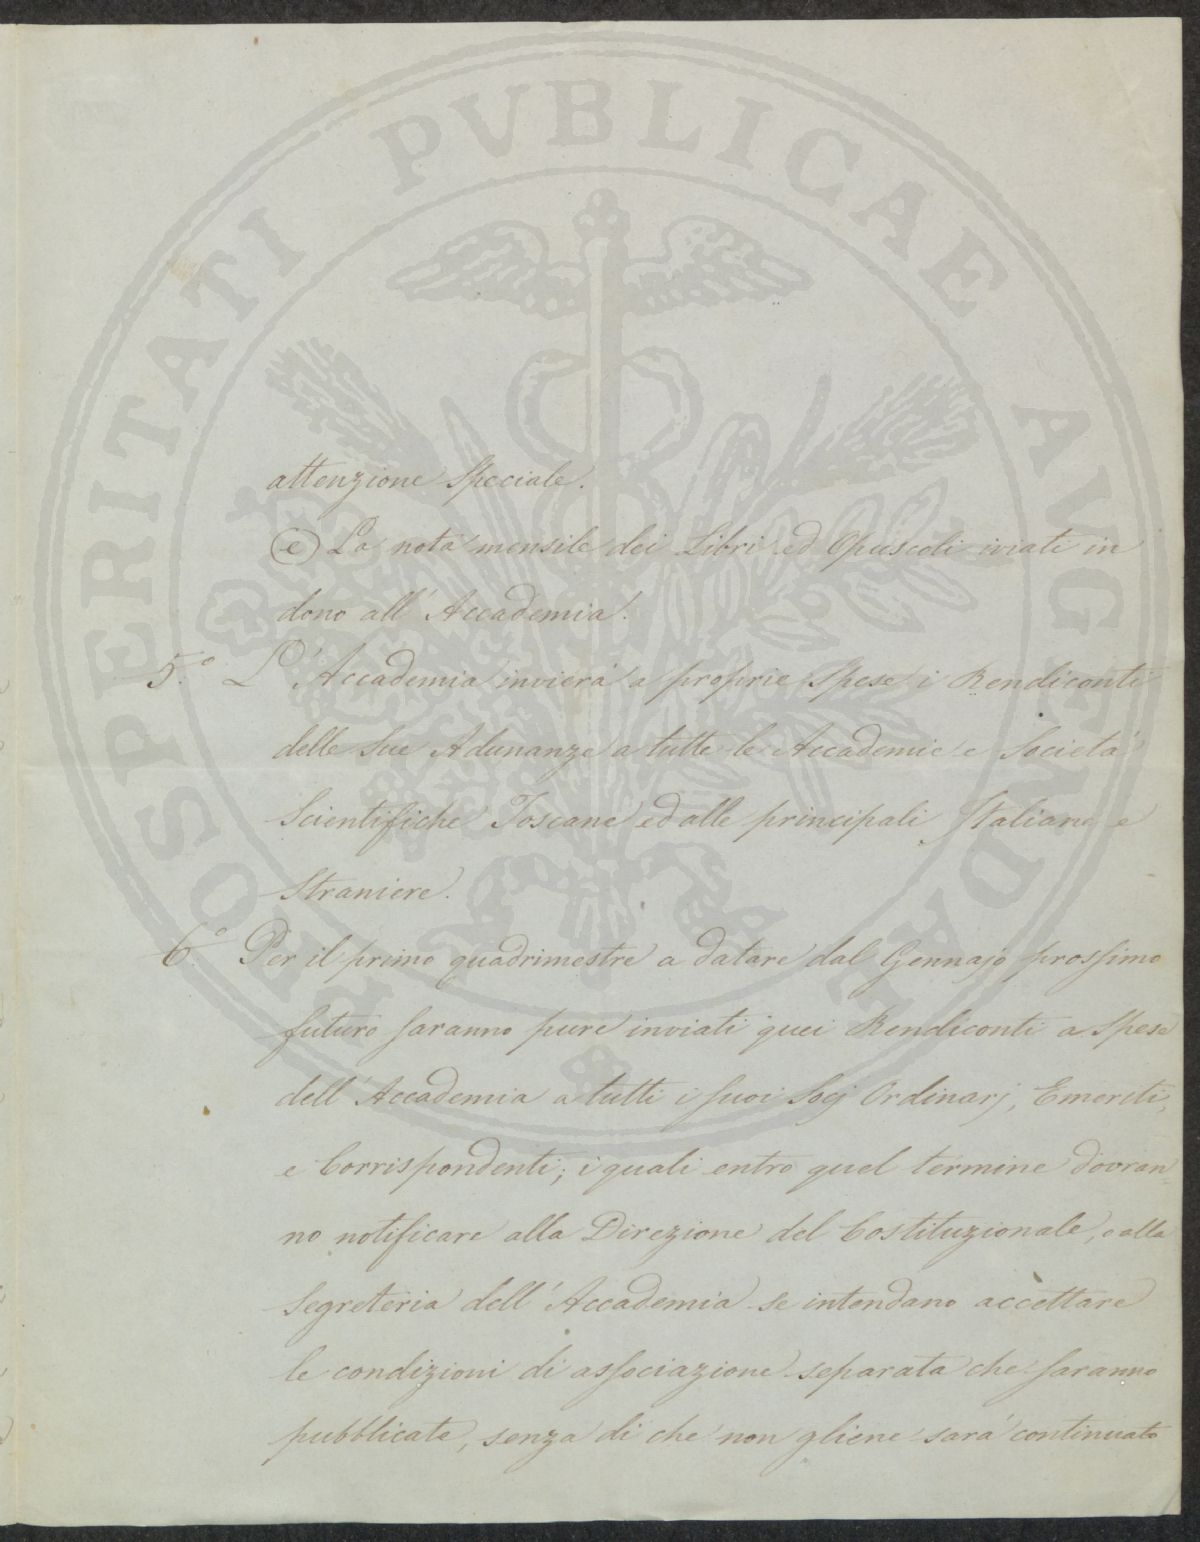 PROSPERITATI PVBLICAE AVGENDAE
attenzione speciale.
(e) La nota mensile dei Libri ed Opuscoli iviati in
dono all'Accademia.
5.° L'Accademia invierà a proprie spese i Rendiconti
delle sue Adunanze a tutte le Accademie e Società
Scientifiche Toscane ed alle principali Italiane e
Straniere.
6.° Per il primo quadrimestre a datare dal Gennajo prossimo
futuro saranno pure inviati quei Rendiconti a spese
dell'Accademia a tutti i suoi Socj Ordinarj, Emeriti,
e Corrispondenti; i quali entro quel termine dovran
no notificare alla Direzione del Costituzionale, o alla
Segreteria dell'Accademia se intendano accettare
le condizioni di associazione separata che saranno
pubblicate, senza di che non gliene sarà continuato